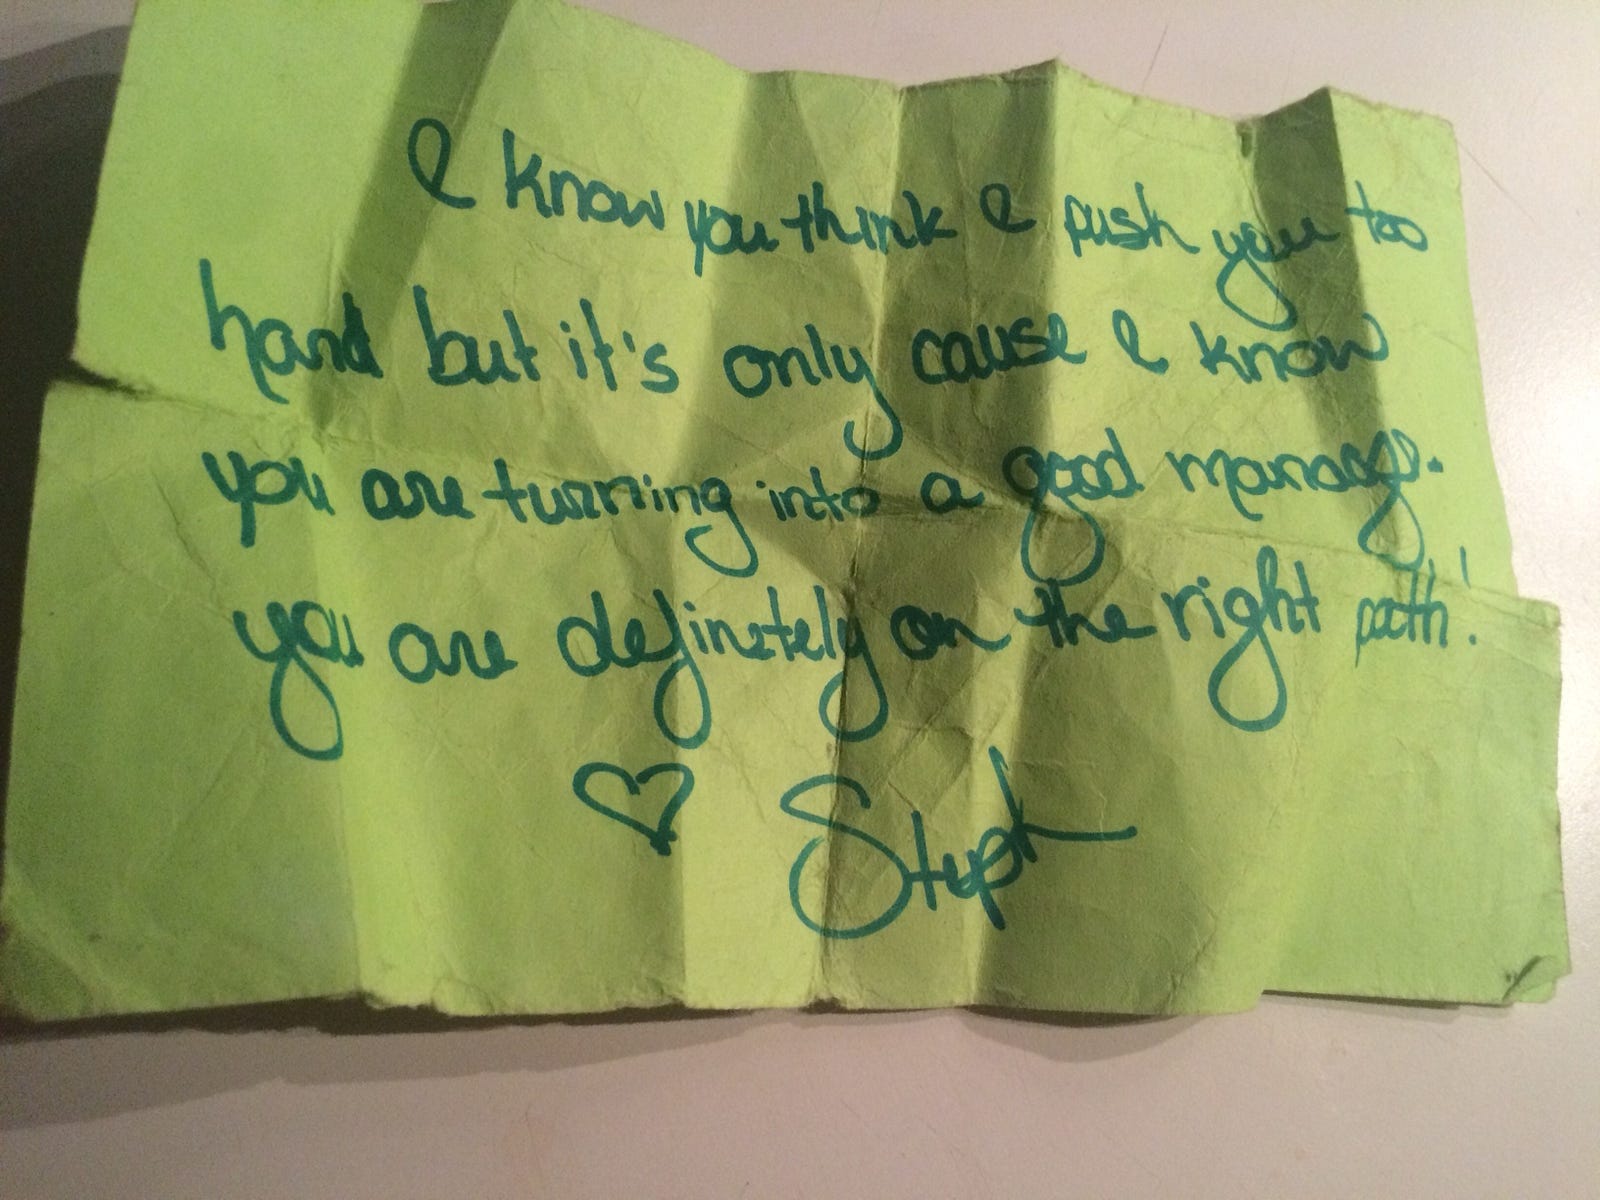 I know you think I push you too
hard but it's only cause I know
you are turning into a good manager.
you are definetely on the right path!
♡ Steph